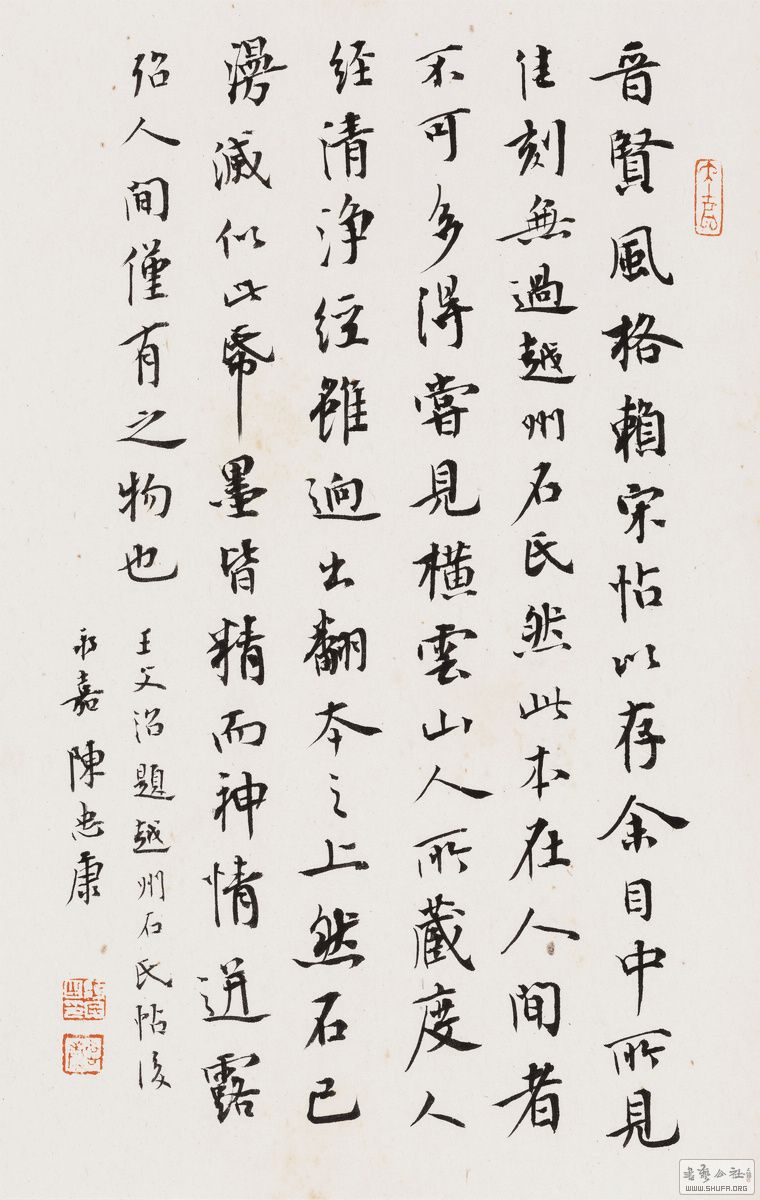 晋賢風格賴宋帖以存余目中所見
佳刻無過越州石氏然此本在人間者
不可多得嘗見橫雲山人所藏度人
經清浄經雖迥出翻本之上然石已
漫滅似此帋墨皆精而神情迸露
殆人間僅有之物也
王文治題越州石氏帖後
永嘉陳忠康
WWW.SHUFA.ORG